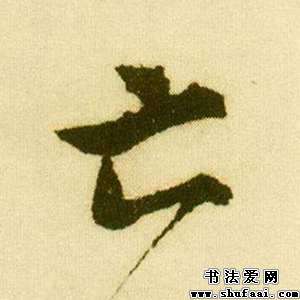 亡
书法爱网
www.shufaai.com